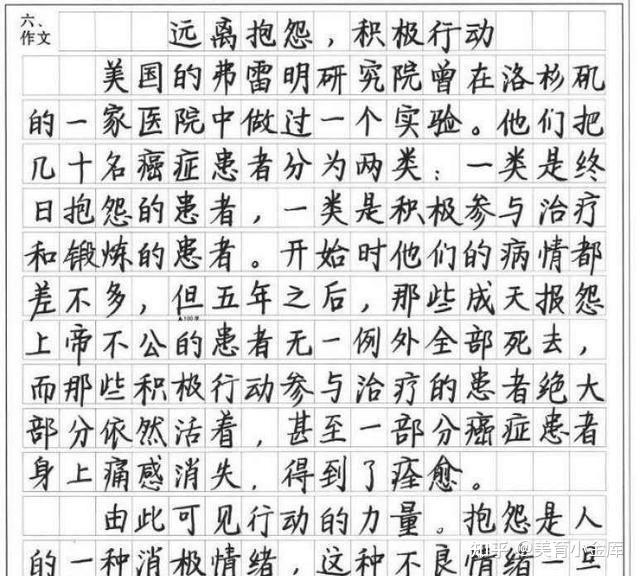 六、
作文
远离抱怨，积极行动
美国的弗雷明研究院曾在洛杉矶
的一家医院中做过一个实验。他们把
几十名癌症患者分为两类：一类是终
日抱怨的患者，一类是积极参与治疗
和锻炼的患者。开始时他们的病情都
差不多，但五年之后，那些成天报怨
▲100字
上帝不公的患者无一例外全部死去，
而那些积极行动参与治疗的患者绝大
部分依然活着，甚至一部分癌症患者
身上痛感消失，得到了痊愈。
由此可见行动的力量。抱怨是人
的一种消极情绪，这种不良情绪一旦
知乎 @美育小金库